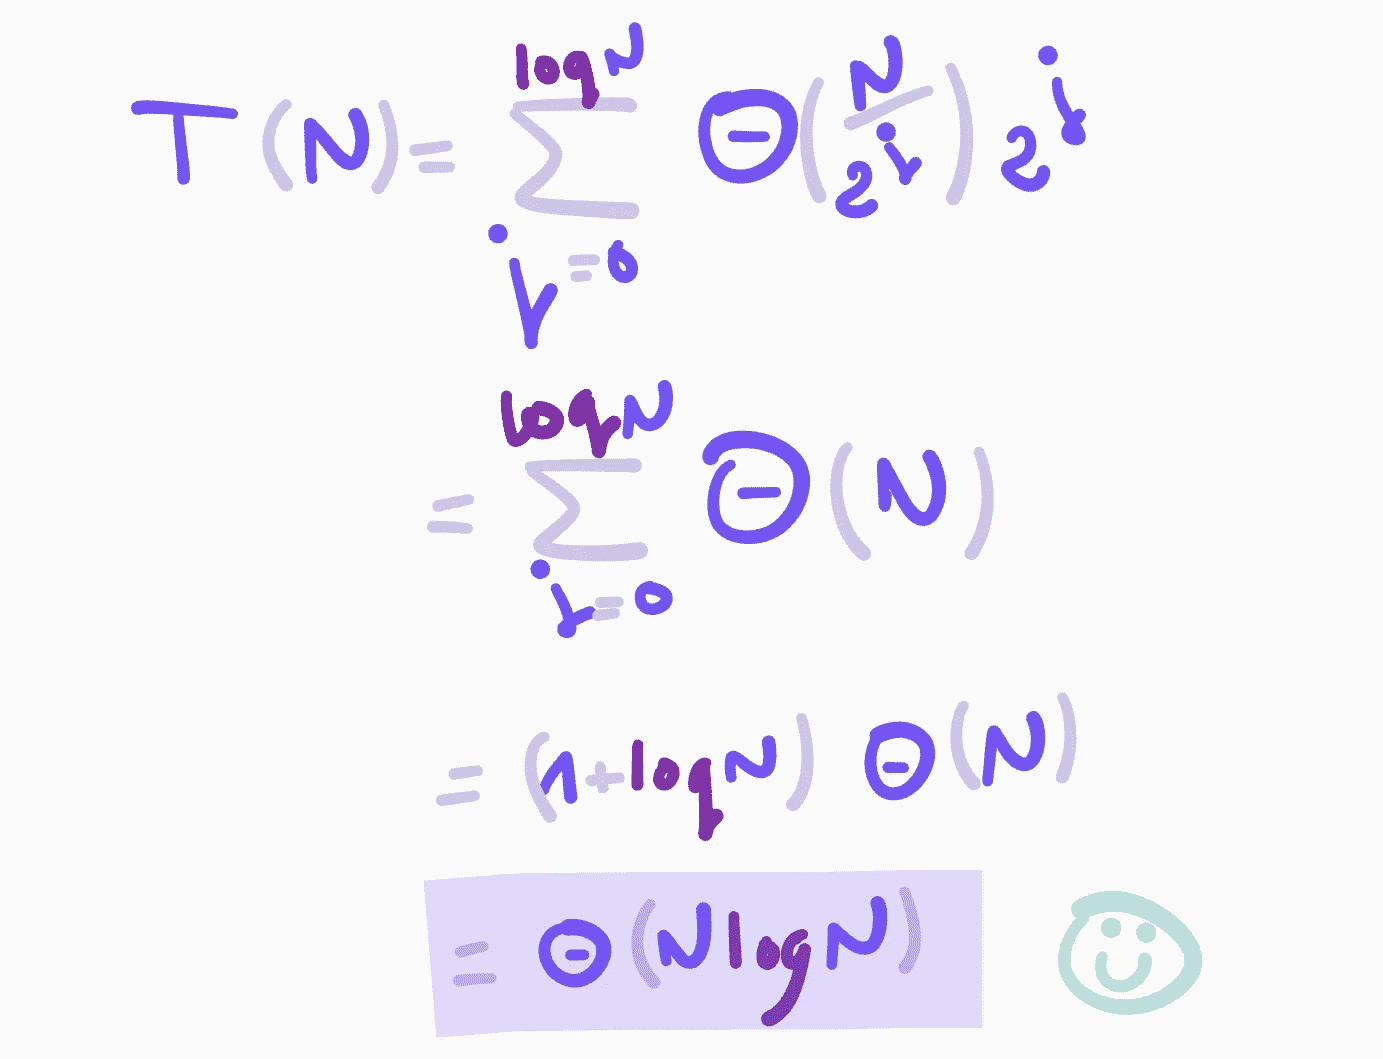 T(N) = \sum_{i=0}^{log N} Θ(\frac{N}{2^i}) 2^i
= \sum_{i=0}^{log N} Θ(N)
= (1+log N) Θ(N)
= Θ(N log N)